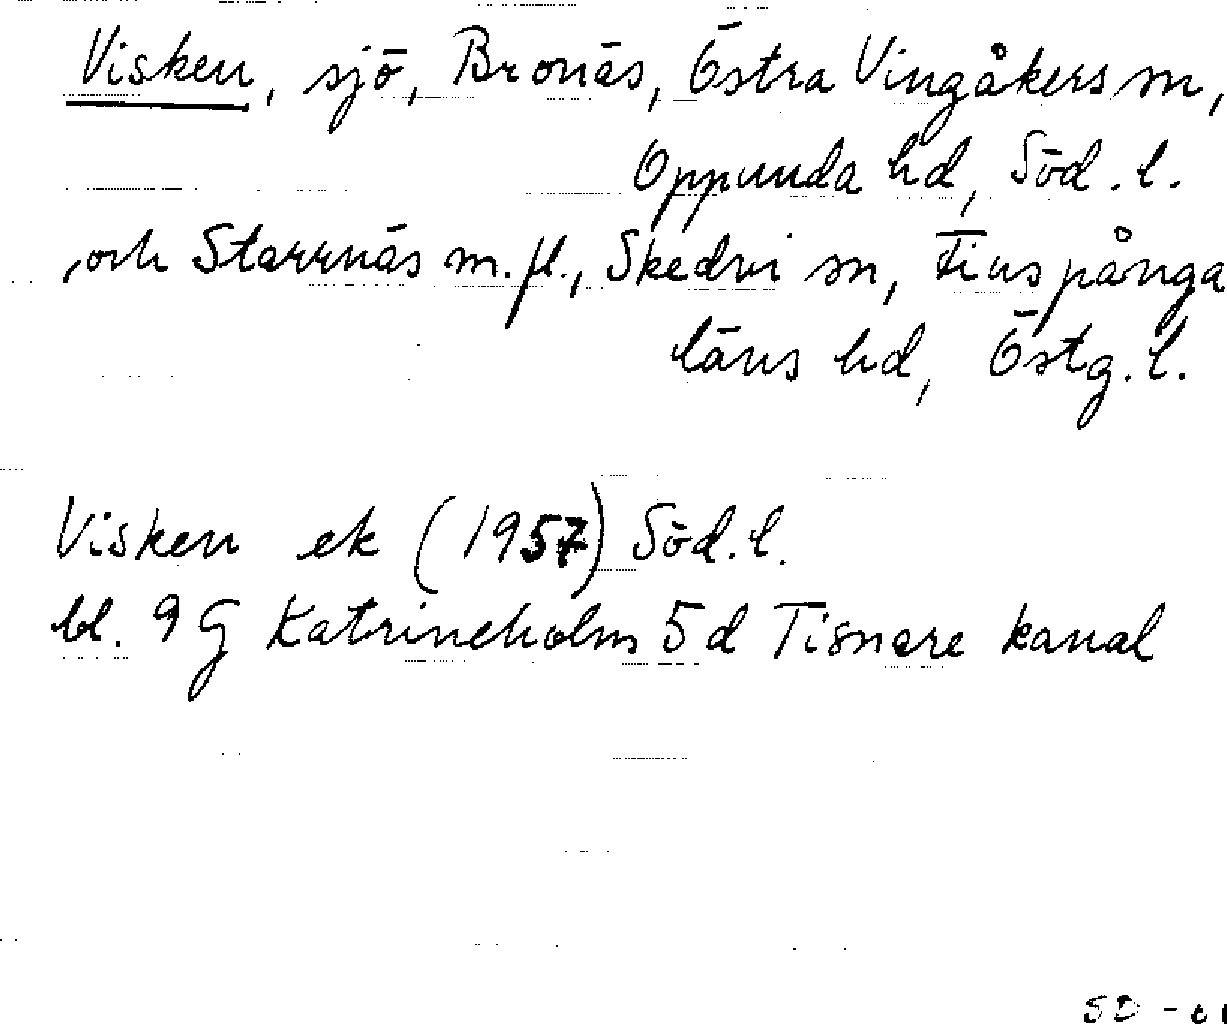 Visken, sjö, Bronäs, Östra Vingåkers sn,
Oppunda hd, Söd. l.
och Starrnäs m. fl., Skedvi sn, Finspånga
läns hd, Östg. l.
Visken ek (1957) Söd. l.
bl. 9 G Katrineholm 5 d Tisnare kanal